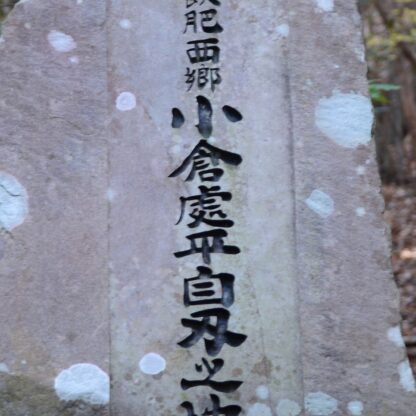 飫肥西郷小倉處平自刃之地